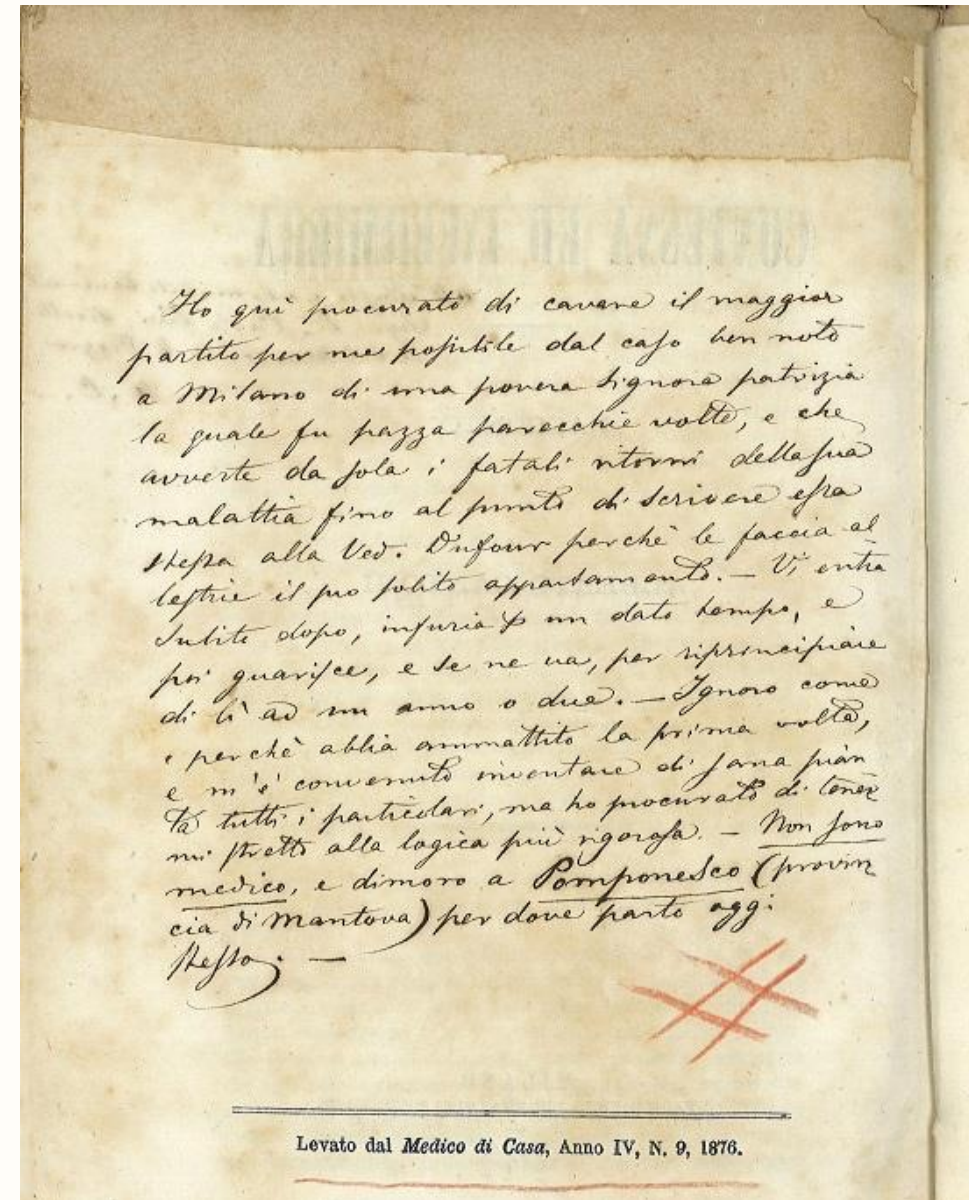 Ho quì procurato di cavare il maggior
partito per me possibile dal caso ben noto
a Milano di una povera Signora patrizia
la quale fu pazza parecchie volte, e che
avverte da sola i fatali ritorni della sua
malattia fino al punto di scrivere essa
stessa alla Ved. Dufour perchè le faccia al
lestire il suo solito appartamento. — Vi entra
subito dopo, infuria p un dato tempo, e
poi guarisce, e se ne va, per riprincipiare
di lì ad un anno o due. — Ignoro come
e perchè abbia ammattito la prima volta,
e m'è convenuto inventare di sana pian
ta tutti i particolari, ma ho procurato di tener
mi stretto alla logica più rigorosa. — Non sono
medico, e dimoro a Pomponesco (provin
cia di Mantova) per dove parto oggi
stesso. —
Levato dal Medico di Casa, Anno IV, N. 9, 1876.